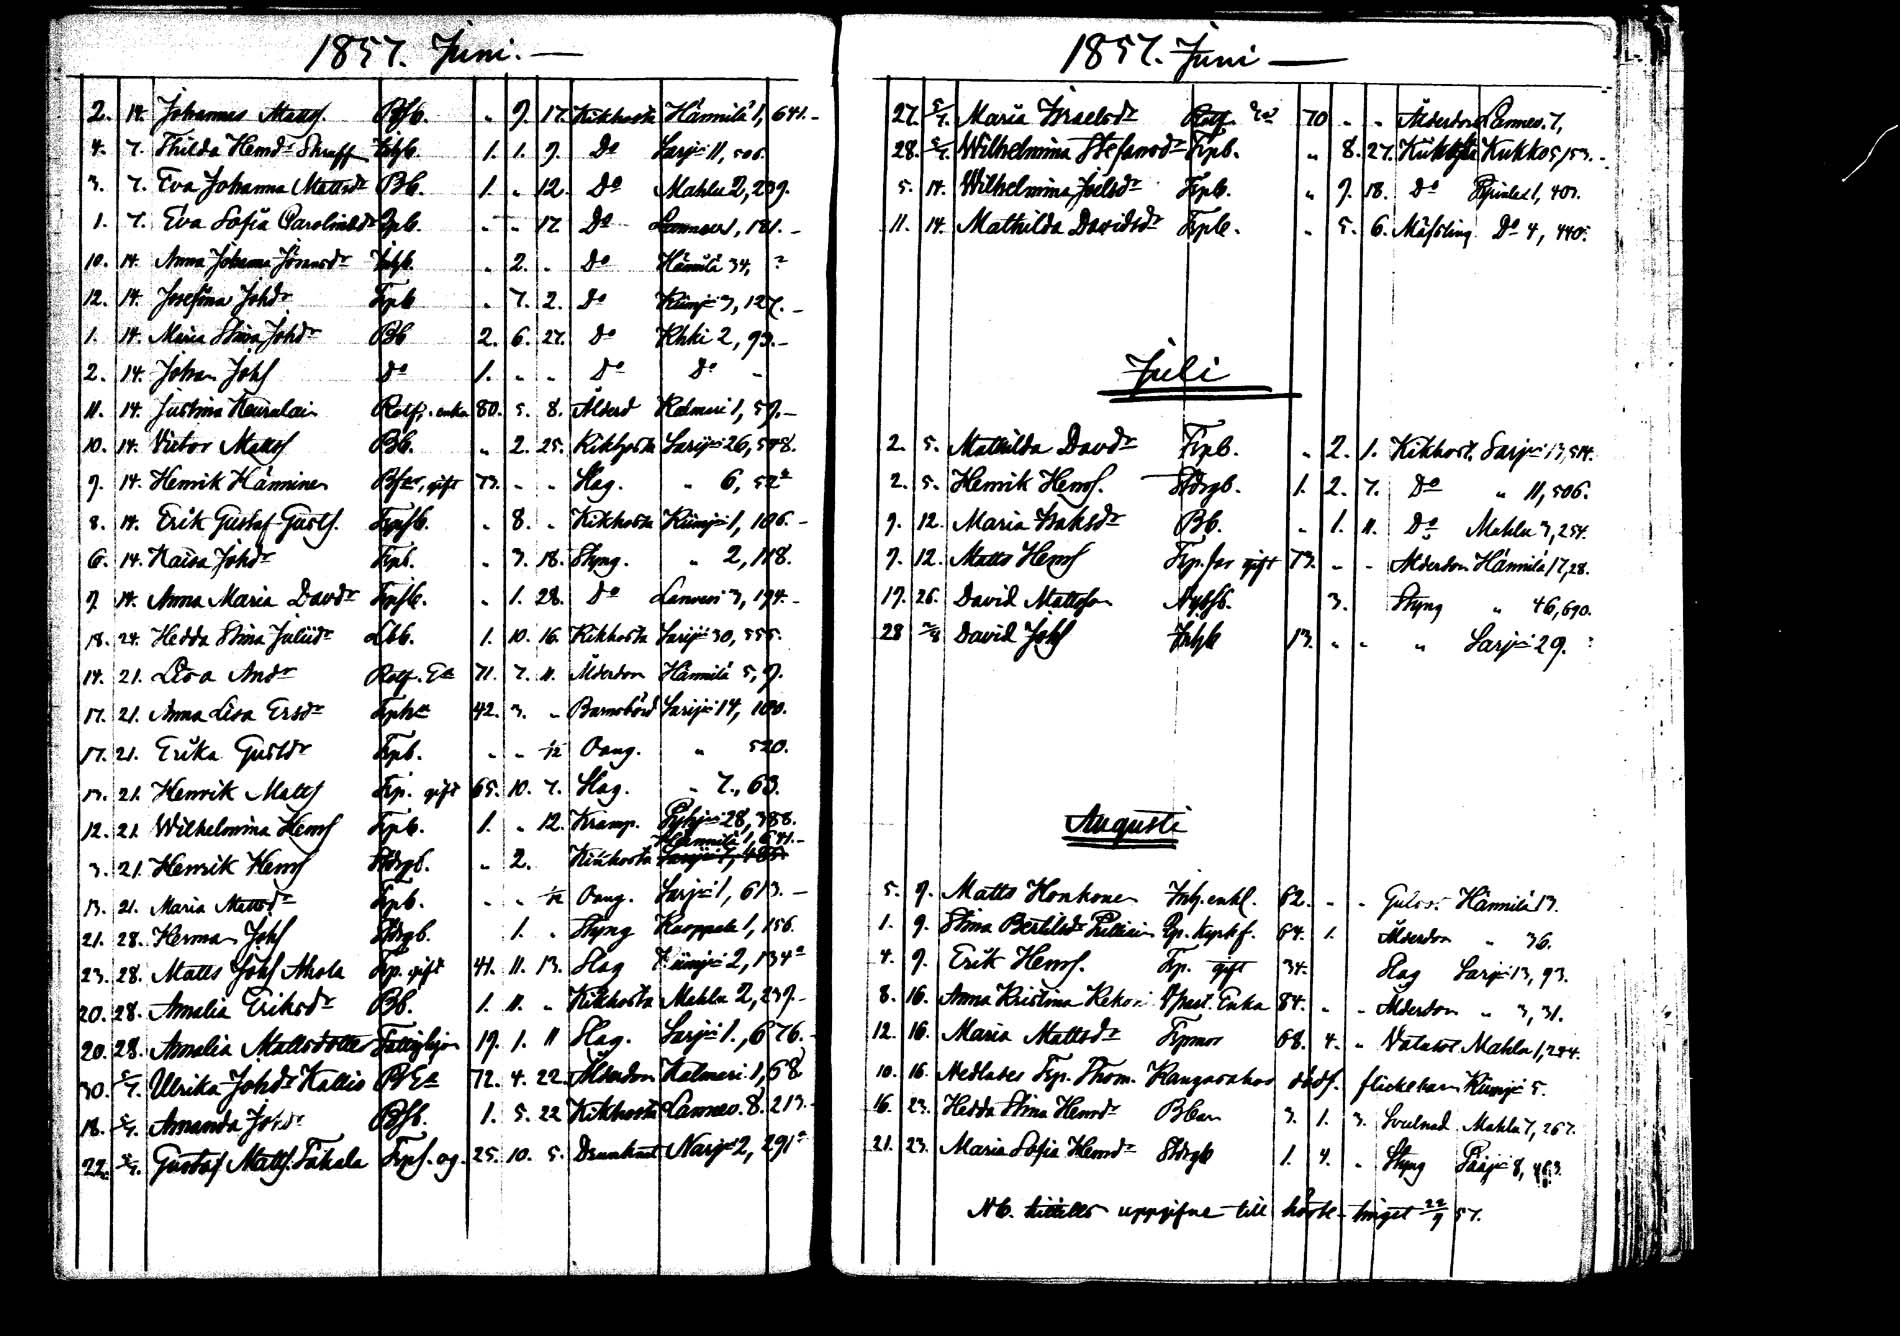 1857. Juni. —
2. 14. Johannes Matts. Bfb. „ 9. 17. Kikhosta Hännilä 1, 641. -
4. 7. Thilda Hemdr Inhb. 1. 1. 9. Do Sarjä 11, 506.
3. 7. Eva Johanna Mattsdr Bb. 1. „ 12. Do Mahlu 2, 239.
1. 7. Eva Sofia Carolinadr „ „ 17 Do Lannev 1, 181. -
10. 14. Anna Johanna Inhb. „ 2. „ Do Hännilä 34, ?
12. 14. Josefina Johdr Trpb „ 7. 2. Do Kümj 3, 127. -
1. 14. Maria Stina Johdr Bb 2. 6. 27. Do 2, 93. -
2. 14. Johan Johs Do 1. „ „ Do Do -
11. 14. Justina Rotf. enka 80. 5. 8. Ålderd Kalmari 1, 59. -
10. 14. Victor Matts Bb. „ 2. 25. Kikhosta Sarjä 26, 548.
9. 14. Henrik Hänninen gift 73. „ „ Slag. „ 6, 52a
8. 14. Erik Gustaf Gusts. „ 8. „ Kikhosta Kümj 1, 106. -
6. 14. Kaisa Johdr Trpb. „ 3. 18. Styng. „ 2, 118.
9. 14. Anna Maria Davdr „ 1. 28. Do Lannevi 3, 194. -
18. 24. Hedda Stina Juliidr Lbb. 1. 10. 16. Kikhosta Sarjä 30, 555.
14. 21. Lisa Andr Rotf. Ea 71. 7. 11. Ålderdom Hännilä 5, 9.
17. 21. Anna Lisa Ersdr 42. 3. „ Barnsbörd Sarjä 14, 100.
17. 21. Erika Gustdr Trpb. „ „ 1/2 Oang. „ 520.
13. 21. Henrik Matts Trp. gift 65. 10. 7. Slag. „ 7., 63.
12. 21. Wilhelmina Hems Trpb. 1. „ 12. Kramp. 28, 388.
Hännilä 1, 641. -
3. 21. Henrik Hems Stdrgb. „ 2. Kikhosta
13. 21. Maria Mattsdr Trpb. „ „ 1/2 Oang. Sarjä 1, 613. -
21. 28. Herman Johs Stdrgb. 1. „ Styng Kuoppala 1, 156.
23. 28. Matts Johs Ahola Trp. gift 41. 11. 13. Slag Kümj 2, 134a
20. 28. Amalia Eriksdr Bb. 1. 11. „ Kikhosta Mahlu 2, 239. -
20. 28. Amalia Mattsdotter 19. 1. 11 Slag. Sarjä 1., 676. -
30. 5/7. Ulrika Johdr Kallio 72. 4. 22. Ålderdom Kalmari 1, 68
18. 5/7. Amanda Johdr Bfb. 1. 5. 22 Kikhosta Lannev. 8. 213. -
22. 5/7. Gustaf Matts. Takala Trps. og. 25. 10. 5. 2, 291a
1857. Juni —
27. 5/7. Maria Israelsdr 70 „ „ Ålderdom Lannev. 7,
28. 5/7. Wilhelmina Stefansdr Trpb. „ 8. 27. Kikhosta Kukko 5, 53. -
5. 14. Wilhelmina Joelsdr Trpb. „ 9. 18. Do 1, 401.
11. 14. Mathilda Davidsdr Trpb. „ 5. 6. Mässling Do 4, 440.
Juli
2. 5. Mathilda Davdr Trpb. „ 2. 1. Kikhost. Sarjä 13, 514.
2. 5. Henrik Hems. Stdrgb. 1. 2. 7. Do „ 11, 506.
9. 12. Maria Isaksdr Bb. „ 1. 11. Do Mahlu 3, 254.
7. 12. Matts Hems Trp.far gift 73. „ „ Ålderdom Hännilä 17, 28.
19. 26. David Mattsson Nybfb. 3. Styng „ 46, 690.
28 2/8 David Johs Inhb 13. „ „ „ Sarjä 29.
Augusti
5. 9. Matts Honkonen Inh. enkl. 62. „ „ Gulsot Hännilä 13.
1. 9. Stina Bertilsdr 64. 1. Ålderdom „ 36.
4. 9. Erik Hems. Trp. gift 34. Slag Sarjä 13, 93.
8. 16. Anna Kristina Enka 84. „ „ Ålderdom „ 3, 31.
12. 16. Maria Mattsdr Trpmor 68. 4. „ Vatusot Mahlu 1, 244.
10. 16. Nedlades Trp. Thom. Kangasahos dödf. flickebarn Kümj 5.
16. 23. Hedda Stina Hemdr 3. 1. 3. Mahlu 7, 267.
21. 23. Maria Sofia Hemdr Stdrgb 1. 4. „ Styng 8, 463.
Nb. hitills uppgifne till höste-tinget 22/9 57.